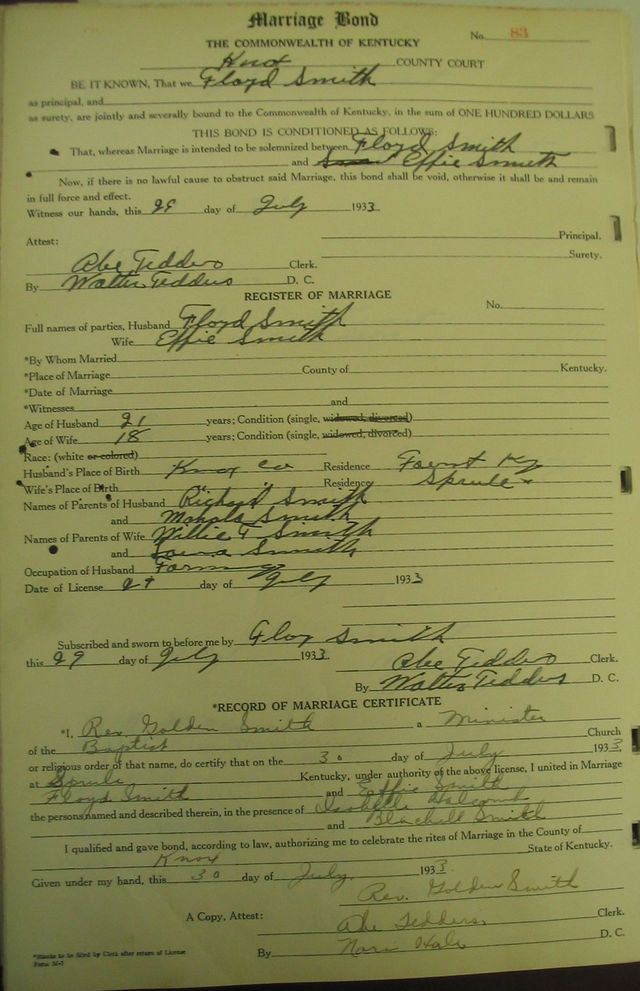 Marriage Bond
No. 83
THE COMMONWEALTH OF KENTUCKY
Knox COUNTY COURT
BE IT KNOWN, That we Floyd Smith
as principal, and
as surety, are jointly and severally bound to the Commonwealth of Kentucky, in the sum of ONE HUNDRED DOLLARS
THIS BOND IS CONDITIONED AS FOLLOWS:
That, whereas Marriage is intended to be solemnized between Floyd Smith
and Effie Smith
Now, if there is no lawful cause to obstruct said Marriage, this bond shall be void, otherwise it shall be and remain
in full force and effect.
Witness our hands, this 29 day of July 1933
Principal.
Attest: Surety.
Abe Tedders Clerk.
By Walter Tedders D. C.
REGISTER OF MARRIAGE
No.
Full names of parties, Husband Floyd Smith
Wife Effie Smith
*By Whom Married
*Place of Marriage County of Kentucky.
*Date of Marriage
*Witnesses and
Age of Husband 21 years; Condition (single, widowed, divorced)
Age of Wife 18 years; Condition (single, widowed, divorced)
Race: (white or colored)
Husband's Place of Birth Knox Co Residence Ky
Wife's Place of Birth Residence Sprule
Names of Parents of Husband Richard Smith
and Smith
Names of Parents of Wife Willie T Smith
and Smith
Occupation of Husband Farming
Date of License day of July 1933
Subscribed and sworn to before me by Floy Smith
this 29 day of July 1933
Abe Tedders Clerk.
By Walter Tedders D. C.
*RECORD OF MARRIAGE CERTIFICATE
*I, Rev. Golden Smith a Minister
of the Baptist Church
or religious order of that name, do certify that on the 30 day of July 1933,
at Sprule Kentucky, under authority of the above license, I united in Marriage
Floyd Smith and Effie Smith
the persons named and described therein, in the presence of Isabelle Holcomb
and Smith
I qualified and gave bond, according to law, authorizing me to celebrate the rites of Marriage in the County of
Knox State of Kentucky.
Given under my hand, this 30 day of July, 1933.
Rev. Golden Smith
A Copy, Attest: Abe Tedders, Clerk.
By D. C.
*Blanks to be filled by Clerk after return of License